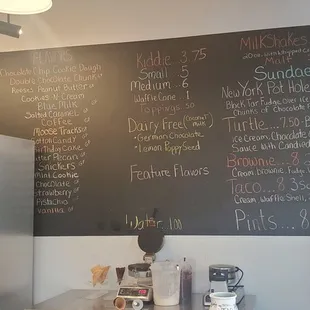 FLAVORS
Chocolate Chip Cookie Dough
Double Chocolate Chunk
Reeses Peanut Butter
Cookies N Cream
Blue Milk
Salted Caramel
Coffee
Moose Tracks
Cotton Candy
Birthday Cake
Butter Pecan
Snickers
Mint Cookie
Chocolate
Strawberry
Pistachio
Vanilla
Kiddie 3.75
Small 5
Medium 6
Waffle Cone 1
Toppings .50
Dairy Free (Coconut milk)
German Chocolate
Lemon Poppy Seed
Feature Flavors
Water 1.00
MilkShakes
Malt
Sundae
New York Pot Hole
Black Tar Fudge Over Ice
Chunks of Chocolate
Turtle ... 7.50
Ice Cream, Chocolate
Sauce with Candied
Brownie ... 8
Cream, brownie, Fudge
Taco ... 8.35
Cream, Waffle Shell,
Pints ... 8